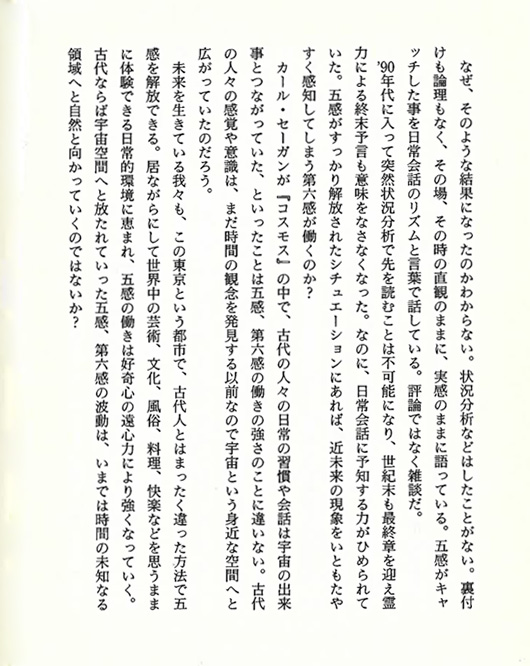 なぜ、そのような結果になったのかわからない。状況分析などはしたことがない。裏付
けも論理もなく、その場、その時の直観のままに、実感のままに語っている。五感がキャ
ッチした事を日常会話のリズムと言葉で話している。評論ではなく雑談だ。
'90年代に入って突然状況分析で先を読むことは不可能になり、世紀末も最終章を迎え霊
力による終末予言も意味をなさなくなった。なのに、日常会話に予知する力がひめられて
いた。五感がすっかり解放されたシチュエーションにあれば、近未来の現象をいともたや
すく感知してしまう第六感が働くのか？
カール・セーガンが『コスモス』の中で、古代の人々の日常の習慣や会話は宇宙の出来
事とつながっていた、といったことは五感、第六感の働きの強さのことに違いない。古代
の人々の感覚や意識は、まだ時間の観念を発見する以前なので宇宙という身近な空間へと
広がっていたのだろう。
未来を生きている我々も、この東京という都市で、古代人とはまったく違った方法で五
感を解放できる。居ながらにして世界中の芸術、文化、風俗、料理、快楽などを思うまま
に体験できる日常的環境に恵まれ、五感の働きは好奇心の遠心力により強くなっていく。
古代ならば宇宙空間へと放たれていった五感、第六感の波動は、いまでは時間の未知なる
領域へと自然と向かっていくのではないか？